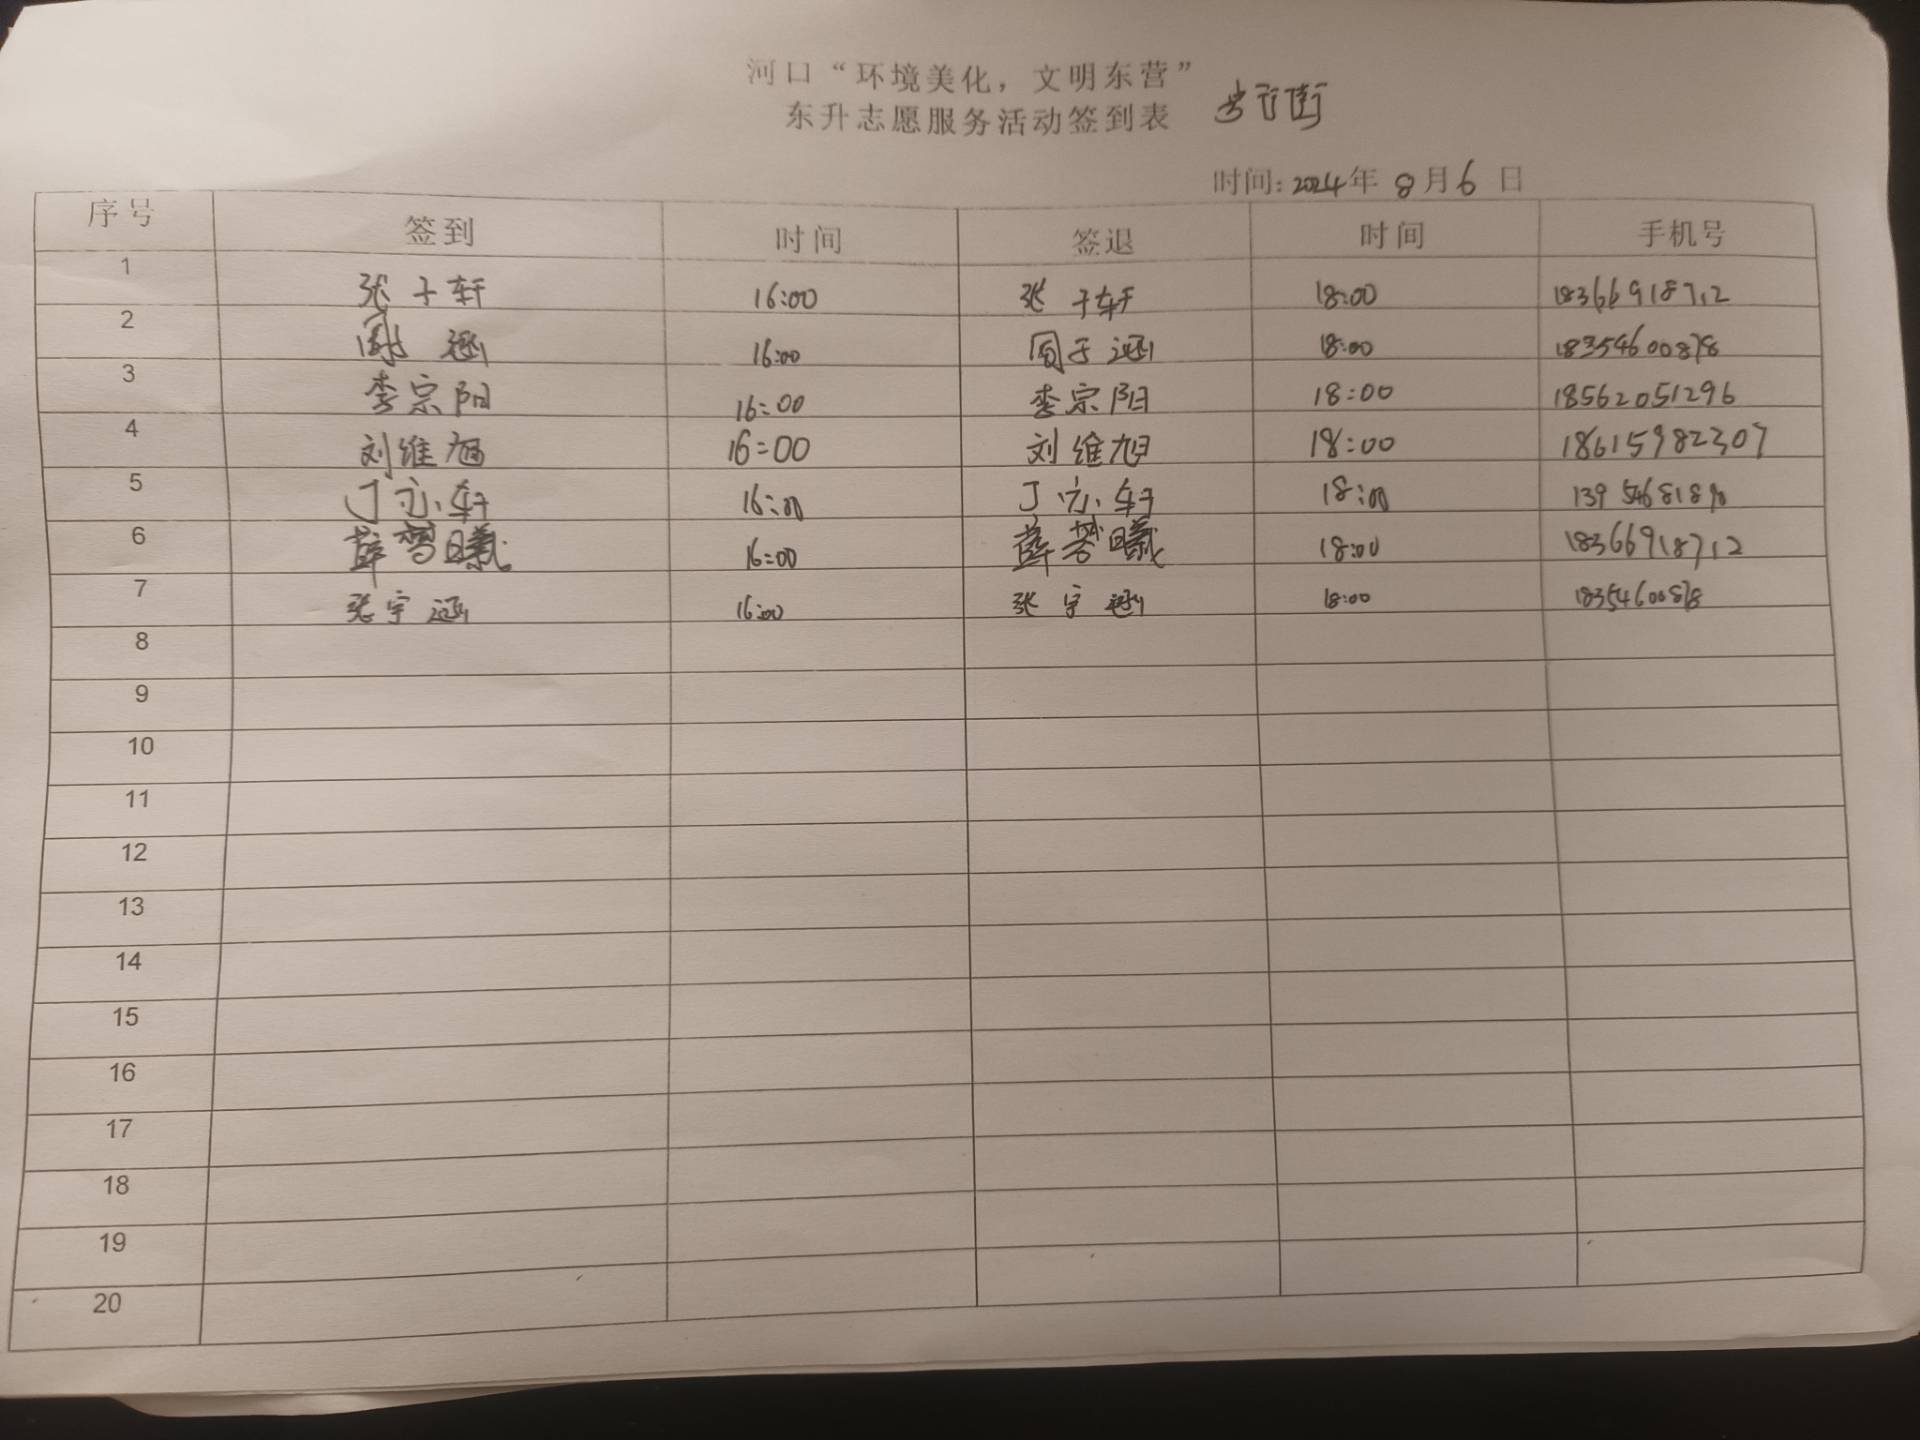 河口“环境美化，文明东营”
东升志愿服务活动签到表 步行街
时间: 2024年 8月6 日
序号 签到 时间 签退 时间 手机号
1 张子轩 16:00 张子轩 18:00 18366918712
2 16:00 周子涵 18:00 18354600878
3 李宗阳 16:00 李宗阳 18:00 18562051296
4 刘维旭 16:00 刘维旭 18:00 18615982307
5 丁亦轩 16:00 丁亦轩 18:00
6 薛梦曦 16:00 薛梦曦 18:00 18366918712
7 张宇涵 16:00 张宇涵 18:00 18354600878
8
9
10
11
12
13
14
15
16
17
18
19
20